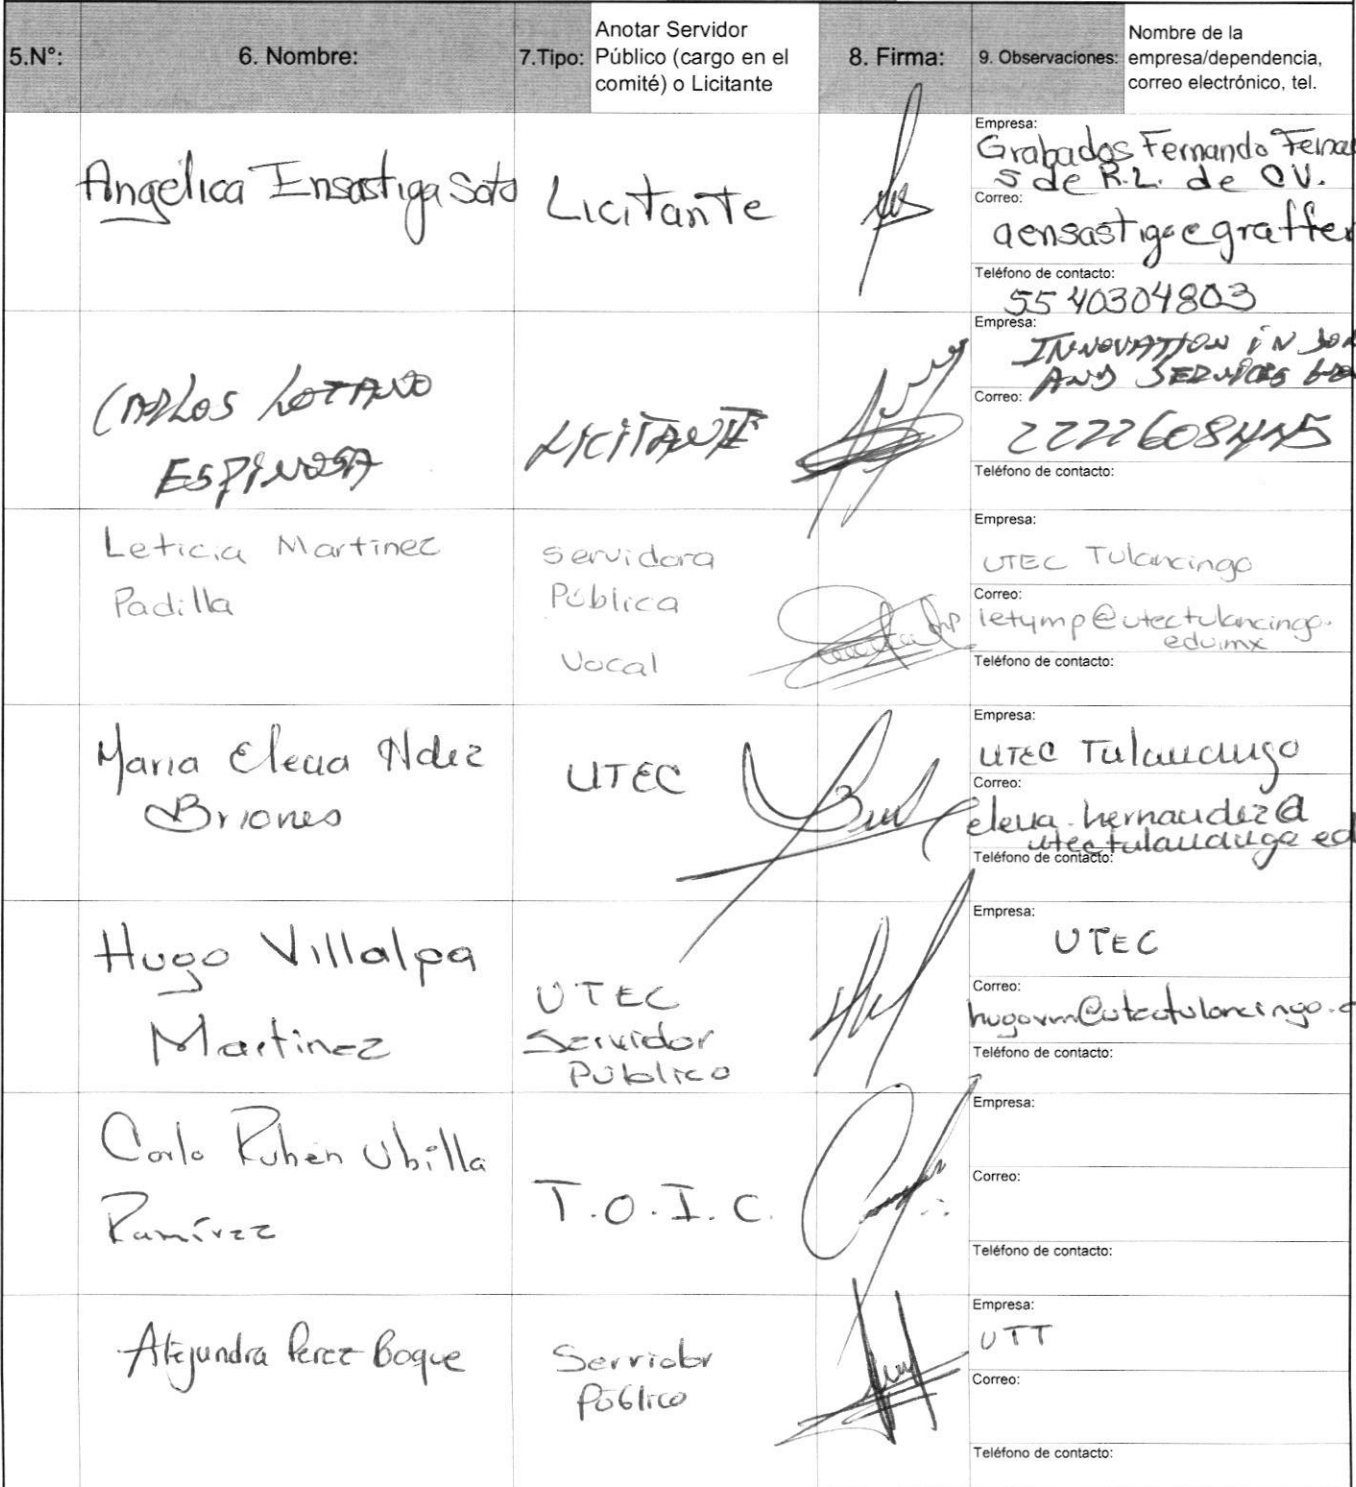 5.N°:
6. Nombre:
7.Tipo:
Anotar Servidor
Público (cargo en el
comité) o Licitante
8. Firma:
9. Observaciones:
Nombre de la
empresa/dependencia,
correo electrónico, tel.
Angélica Ensastiga Soto
Licitante
Empresa:
Grabados Fernando Fernan
S de R.L. de C.V.
Correo:
aensastiga@graffer
Teléfono de contacto:
55 40304803
Carlos Lozano
Espinosa
Licitante
Empresa:
INNOVATION iN
AND SERVICES
Correo:
Teléfono de contacto:
Leticia Martinez
Padilla
Servidora
Pública
Vocal
Empresa:
UTEC Tulancingo
Correo:
letymp@utectulancingo.
edu.mx
Teléfono de contacto:
Maria Elena Hdez
Briones
UTEC
Empresa:
UTEC Tulancingo
Correo:
elena.hernandez@
utectulancingo ed
Teléfono de contacto:
Hugo Villalpa
Martinez
UTEC
Servidor
Público
Empresa:
UTEC
Correo:
hugovm@utectulancingo.e
Teléfono de contacto:
Carlo Ruben Ubilla
Ramírez
T.O.I.C.
Empresa:
Correo:
Teléfono de contacto:
Alejandra Perez Boque
Servidor
Público
Empresa:
UTT
Correo:
Teléfono de contacto: